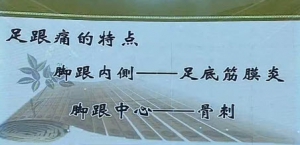 足跟痛的特点
脚跟内侧——足底筋膜炎
脚跟中心——骨刺